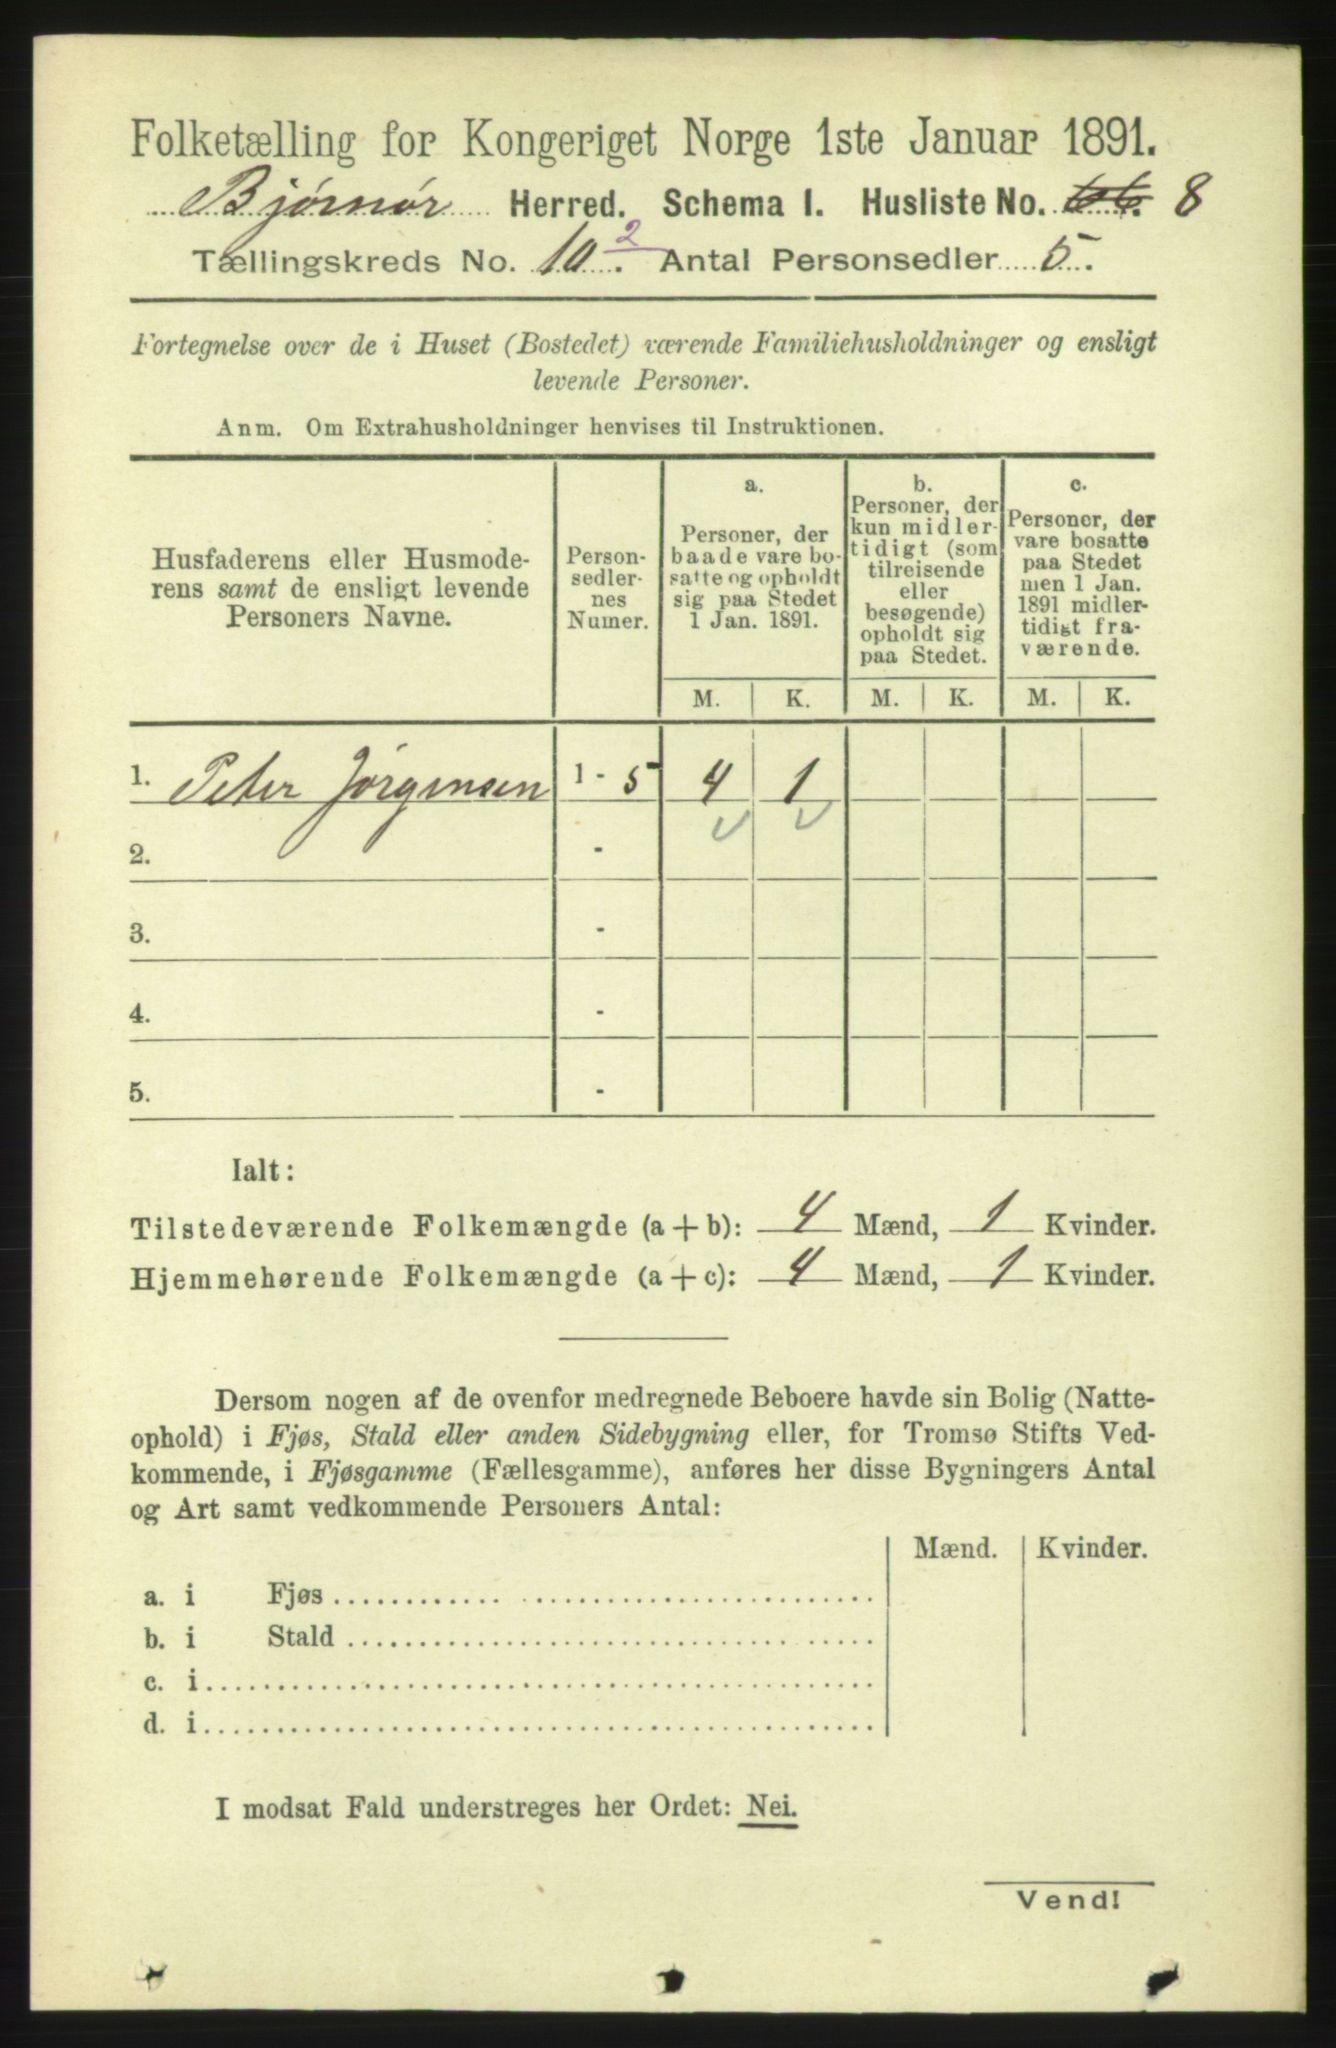 Folketælling for Kongeriget Norge 1ste Januar 1891.
Bjørnør Herred. Schema I. Husliste No. 66. 8
Tællingskreds No. 10.2 Antal Personsedler 5.
Fortegnelse over de i Huset (Bostedet) værende Familiehusholdninger og ensligt
levende Personer.
Anm. Om Extrahusholdninger henvises til Instruktionen.
Husfaderens eller Husmode-
rens samt de ensligt levende
Personers Navne.
Person-
sedler-
nes
Numer.
a.
Personer, der
baade vare bo-
satte og opholdt
sig paa Stedet
1 Jan. 1891.
b.
Personer, der
kun midler-
tidigt (som
tilreisende
eller
besøgende)
opholdt sig
paa Stedet.
c.
Personer, der
vare bosatte
paa Stedet
men 1 Jan.
1891 midler-
tidigt fra-
værende.
M. K. M. K. M. K.
1. Peter Jørgensen 1 - 5 4 1
2. -
3. -
4. -
5. -
Ialt:
Tilstedeværende Folkemængde (a + b): 4 Mænd, 1 Kvinder.
Hjemmehørende Folkemængde (a + c): 4 Mænd, 1 Kvinder.
Dersom nogen af de ovenfor medregnede Beboere havde sin Bolig (Natte-
ophold) i Fjøs, Stald eller anden Sidebygning eller, for Tromsø Stifts Ved-
kommende, i Fjøsgamme (Fællesgamme), anføres her disse Bygningers Antal
og Art samt vedkommende Personers Antal:
Mænd. Kvinder.
a. i Fjøs
b. i Stald
c. i
d. i
I modsat Fald understreges her Ordet: Nei.
Vend!